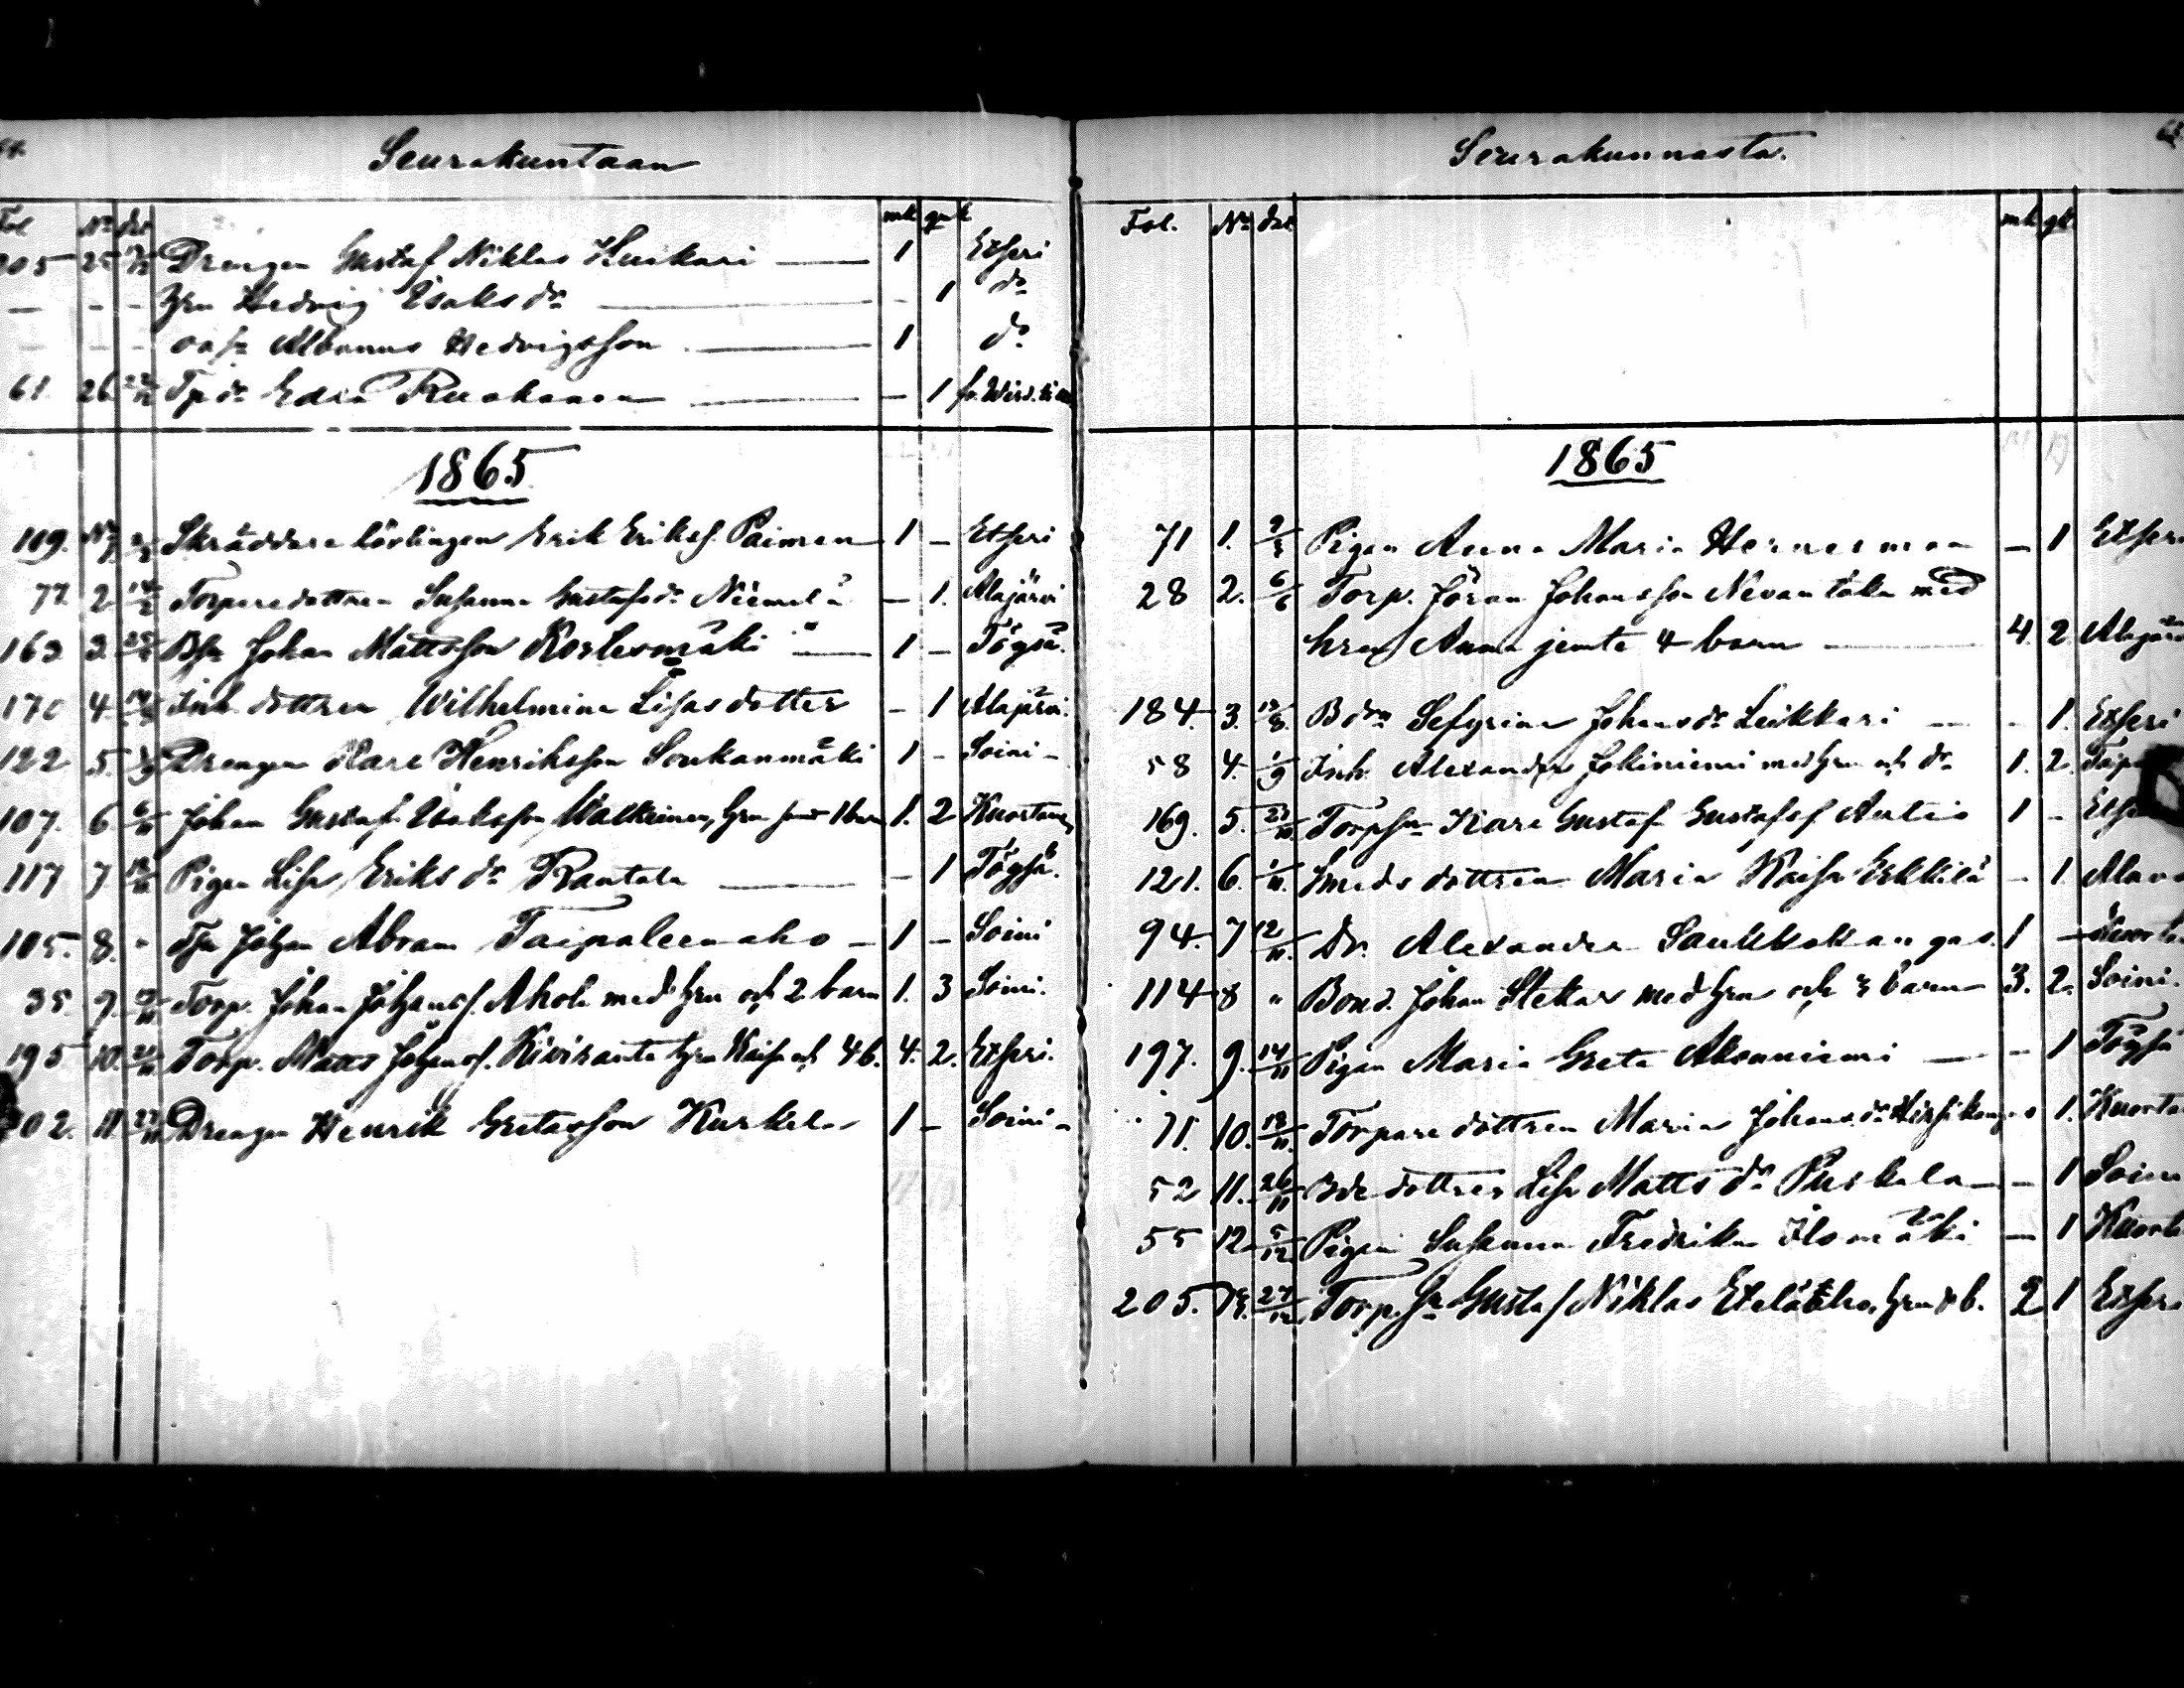 Seurakuntaan
Fol No dat mk gk
205 25 Drengen Gustaf Niklas Huikari — 1 Etseri
— - - Hedvig Isaks dr — - 1 do
— - - oä Albanus Hedvigsson — 1 do
61. 26 Tpdr Edla Ruohonen — - 1 fr. Wirdois
1865
109. No 1 Skräddare lärlingen Erik Eriks. Paimen 1 - Etseri
77. 2 Torparedottren Susanna Gustafsdr Niemelä - 1. Alajärvi
163 3 Johan Mattsson Kortesmäki — 1 - Töysä.
170 4 Inh. dottren Wilhelmina Lisasdotter - 1 Alajärvi.
122 5 Drengen Karl Henriksson Soukanmäki 1 - Soini -
107. 6 Johan Gustaf Isaksson Walkeinen, hru 1 barn 1. 2 Kuortane
117 7 Pigan Lisa Eriks dr Rantala — - 1 Töysä.
105. 8. " Johan Abram Taipaleenaho - 1 - Soini
35 9. Torp. Johan Johans. Ahola med hru och 2 barn 1. 3 Soini.
195 10. Torp. Matts Johans. Kiviranta hru Kaisa och 4 b. 4. 2. Etseri.
202. 11 27/11 Drengen Henrik Gretasson Kurkela 1 - Soini -
Seurakunnasta.
Fol. No dat mk gk.
1865
71 1. Pigan Anna Maria Hernesman - 1 Etseri
28 2. 6/6 Torp. Jöran Johansson Nevantaka med
hru Anna jemte 4 barn — 4. 2. Alajärvi
184. 3. 13/8. B dr Sefyrina Johans dr Leikkari — - 1. Etseri
58 4. 1/9 Inh. Alexander Jokiniemi med hru och dr 1. 2.
169. 5. 27/10. Torpsn Karl Gustaf Gustafs. Autio 1 -
121. 6. 1/11. Smeds dottren Maria Kaisa Erkkilä - 1. Alavo
94. 7 12/11. Dr. Alexander Saukkokangas. 1 -
114 8 " Bond. Johan Stekar med hru och 3 barn 3. 2. Soini.
197. 9. 14/11 Pigan Maria Greta Aksanniemi — - 1 Töysä
71. 10. 18/11. Torpare dottren Maria Johans. dr Hirsikangas 1. Kuorta
52 11. 26/11 Bde dottren Lisa Matts dr Puskala - - 1 Soini
55 12 5/12 Pigan Susanna Fredrika Ilomäki — 1 Kuorta
205. 13. 27/12 Torp. sn Gustaf Niklas Eteläaho, hru & b. 2 1 Etseri